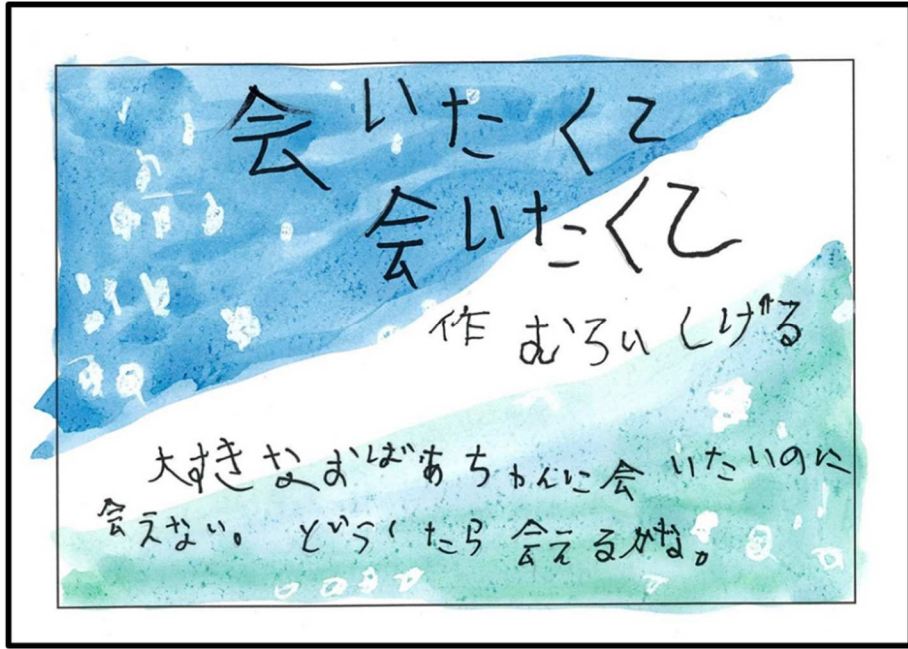 会いたくて
会いたくて
作 むろいしげる
大すきなおばあちゃんに会いたいのに
会えない。どうしたら会えるかな。